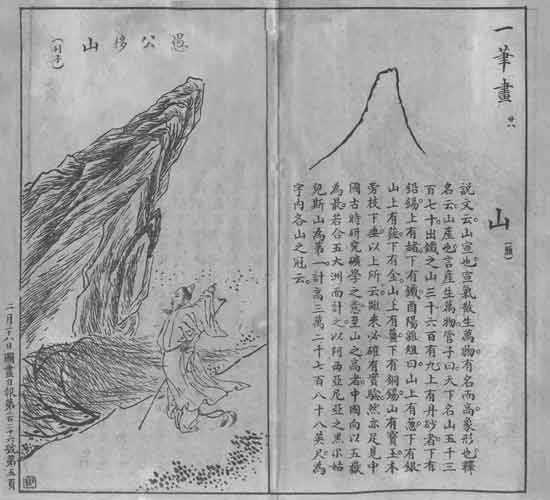 一筆畫
山
說文云山宣也宣氣散生萬物有名而高象形也釋
名云山產也言產生萬物管子曰天下名山五千三
百七十出鐵之山三千六百有九上有丹砂者下有
鉛錫上有赭下有鐵酉陽雜俎曰山上有葱下有銀
山上有薤下有金山上有薑下有銅錫山有寶玉木
旁枝下垂以上所云雖未必確有實驗然亦足見中
國古時研究礦學之意至山之高者中國向以五嶽
為最若合五大洲而計之以阿西亞尼亞之黑爾姑
兒斯山為第一計高三萬二千七百八十八英尺為
宇內各山之冠云
愚公移山
(列子)
二月廿八日圖畫日報第二百二十六號第五頁